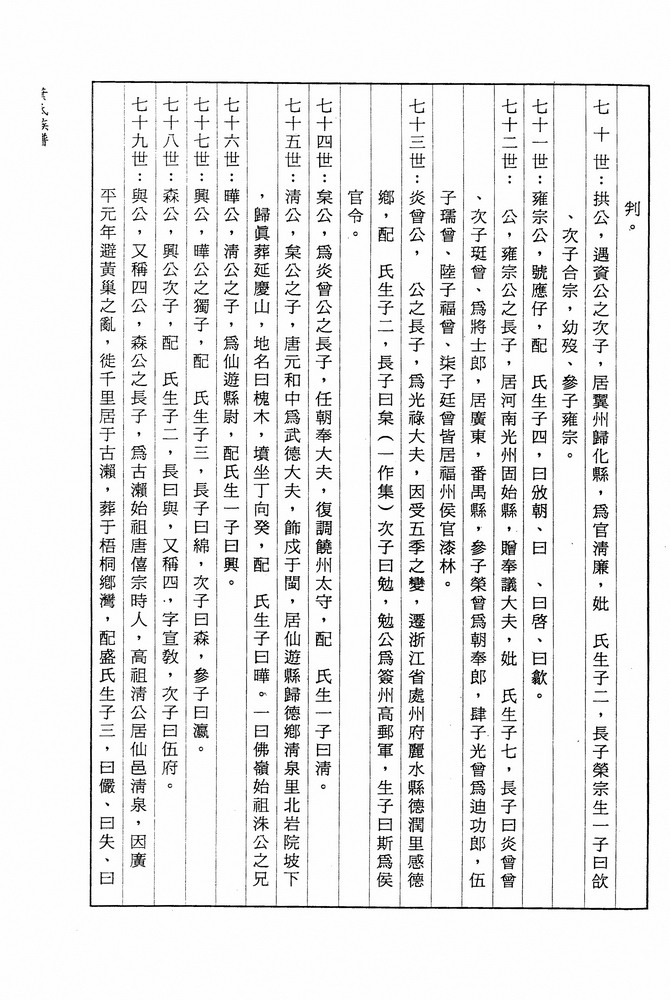 判。
七十世：拱公，遇資公之次子，居翼州歸化縣，為官清廉，妣　氏生子二，長子榮宗生一子曰欿
、次子合宗，幼歿、參子雍宗。
七十一世：雍宗公，號應仔，配　氏生子四，曰攽朝、曰　、曰啓、曰歡。
七十二世：　公，雍宗公之長子，居河南光州固始縣，贈奉議大夫，妣　氏生子七，長子曰炎曾曾
、次子珽曾、為將士郎，居廣東，番禺縣，參子榮曾為朝奉郎，肆子光曾為迪功郎，伍
子瓀曾、陸子福曾、柒子廷曾皆居福州侯官漆林。
七十三世：炎曾公，　公之長子，為光祿大夫，因受五季之變，遷浙江省處州府麗水縣德潤里感德
鄉，配　氏生子二，長子曰枲（一作集）次子曰勉，勉公為簽州高郵軍，生子曰斯為侯
官令。
七十四世：枲公，為炎曾公之長子，任朝奉大夫，復調饒州太守，配　氏生一子曰清。
七十五世：清公，枲公之子，唐元和中為武德大夫，飾戍于閩，居仙遊縣歸德鄉清泉里北岩院坡下
，歸真葬延慶山，地名曰槐木，墳坐丁向癸，配　氏生子曰曄。一曰佛嶺始祖洙公之兄
七十六世：曄公，清公之子，為仙遊縣尉，配氏生一子曰興。
七十七世：興公，曄公之獨子，配　氏生子三，長子曰綿，次子曰森，參子曰瀛。
七十八世：森公，興公次子，配　氏生子二，長曰與，又稱四，字宣教，次子曰伍府。
七十九世：與公，又稱四公，森公之長子，為古瀨始祖唐僖宗時人，高祖清公居仙邑清泉，因廣
平元年避黃巢之亂，徙千里居于古瀨，葬于梧桐鄉灣，配盛氏生子三，曰儼、曰失、曰